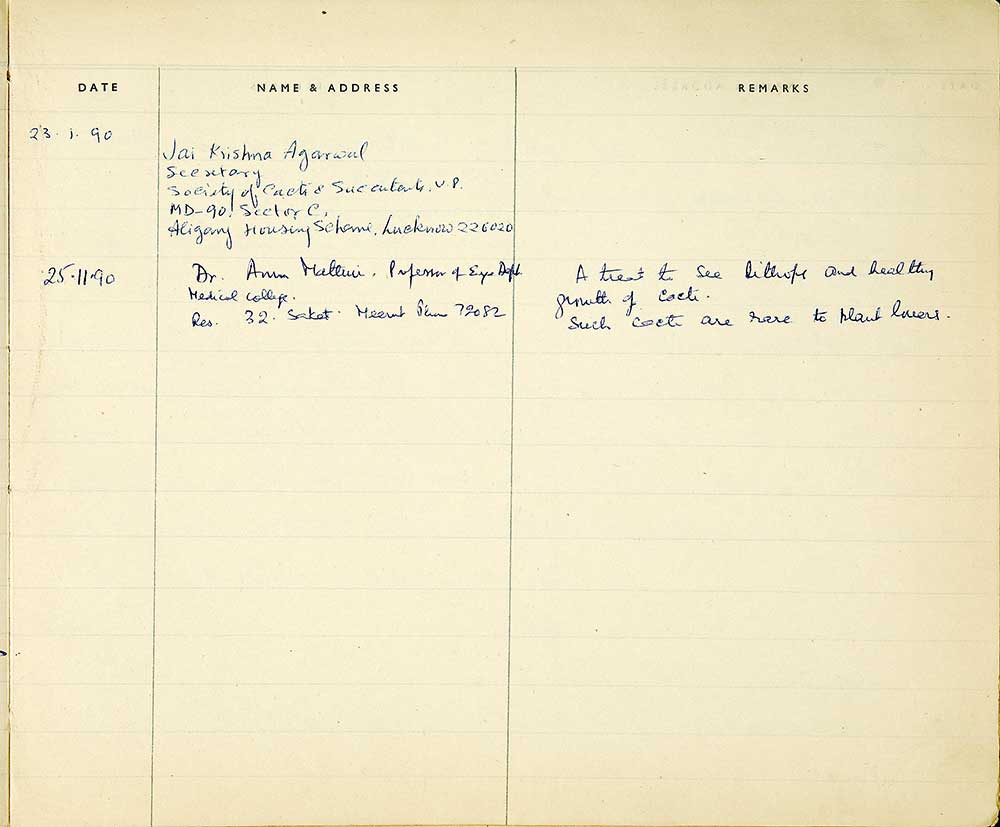 DATE NAME & ADDRESS REMARKS
23. 1. 90
Jai Krishna Agarwal
Secretary
Society of Cacti & Succulents, U.P.
MD-90, Sector C,
Aliganj Housing Scheme, Lucknow 226020
25.11.90 Dr. Professor of Eye Deptt. A treat to see and healthy
Medical College. growth of Cacti.
Res. 32. Saket. Meerut 72082 Such cacti are rare to plant lovers.